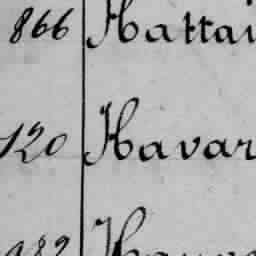 866 Hattai
120 Havar